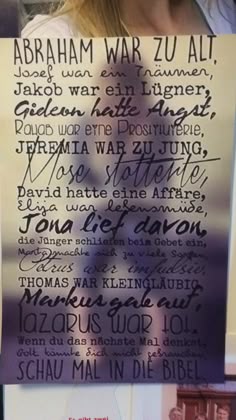 ABRAHAM WAR ZU ALT,
Josef war ein Träumer,
Jakob war ein Lügner,
Gideon hatte Angst,
Rahab war eine Prostituierte,
JEREMIA WAR ZU JUNG,
Mose stotterte,
David hatte eine Affäre,
Elija war lebensmüde,
Jona lief davon,
die Jünger schliefen beim Gebet ein,
Marta machte sich zu viele Sorgen,
Petrus war impulsiv,
THOMAS WAR KLEINGLÄUBIG,
Markus gab auf,
LAZARUS WAR TOT.
Wenn du das nächste Mal denkst,
Gott könnte dich nicht gebrauchen,
SCHAU MAL IN DIE BIBEL.
Es gibt zwei